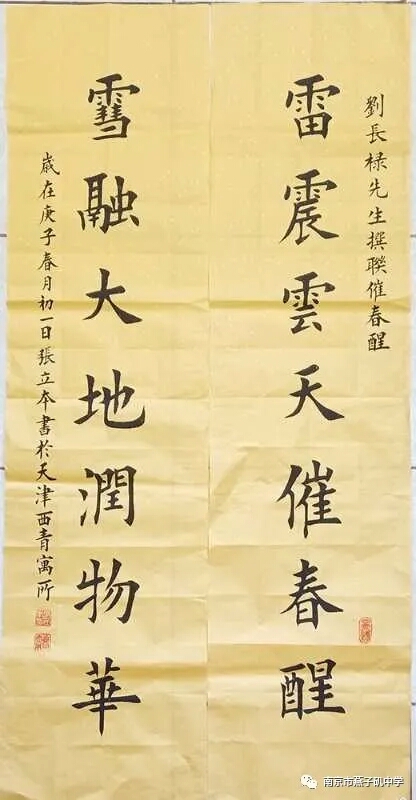 劉長禄先生撰聯催春醒
雷震雲天催春醒
雪融大地潤物華
歲在庚子春月初一日張立本書於天津西青寓所
南京市燕子矶中学